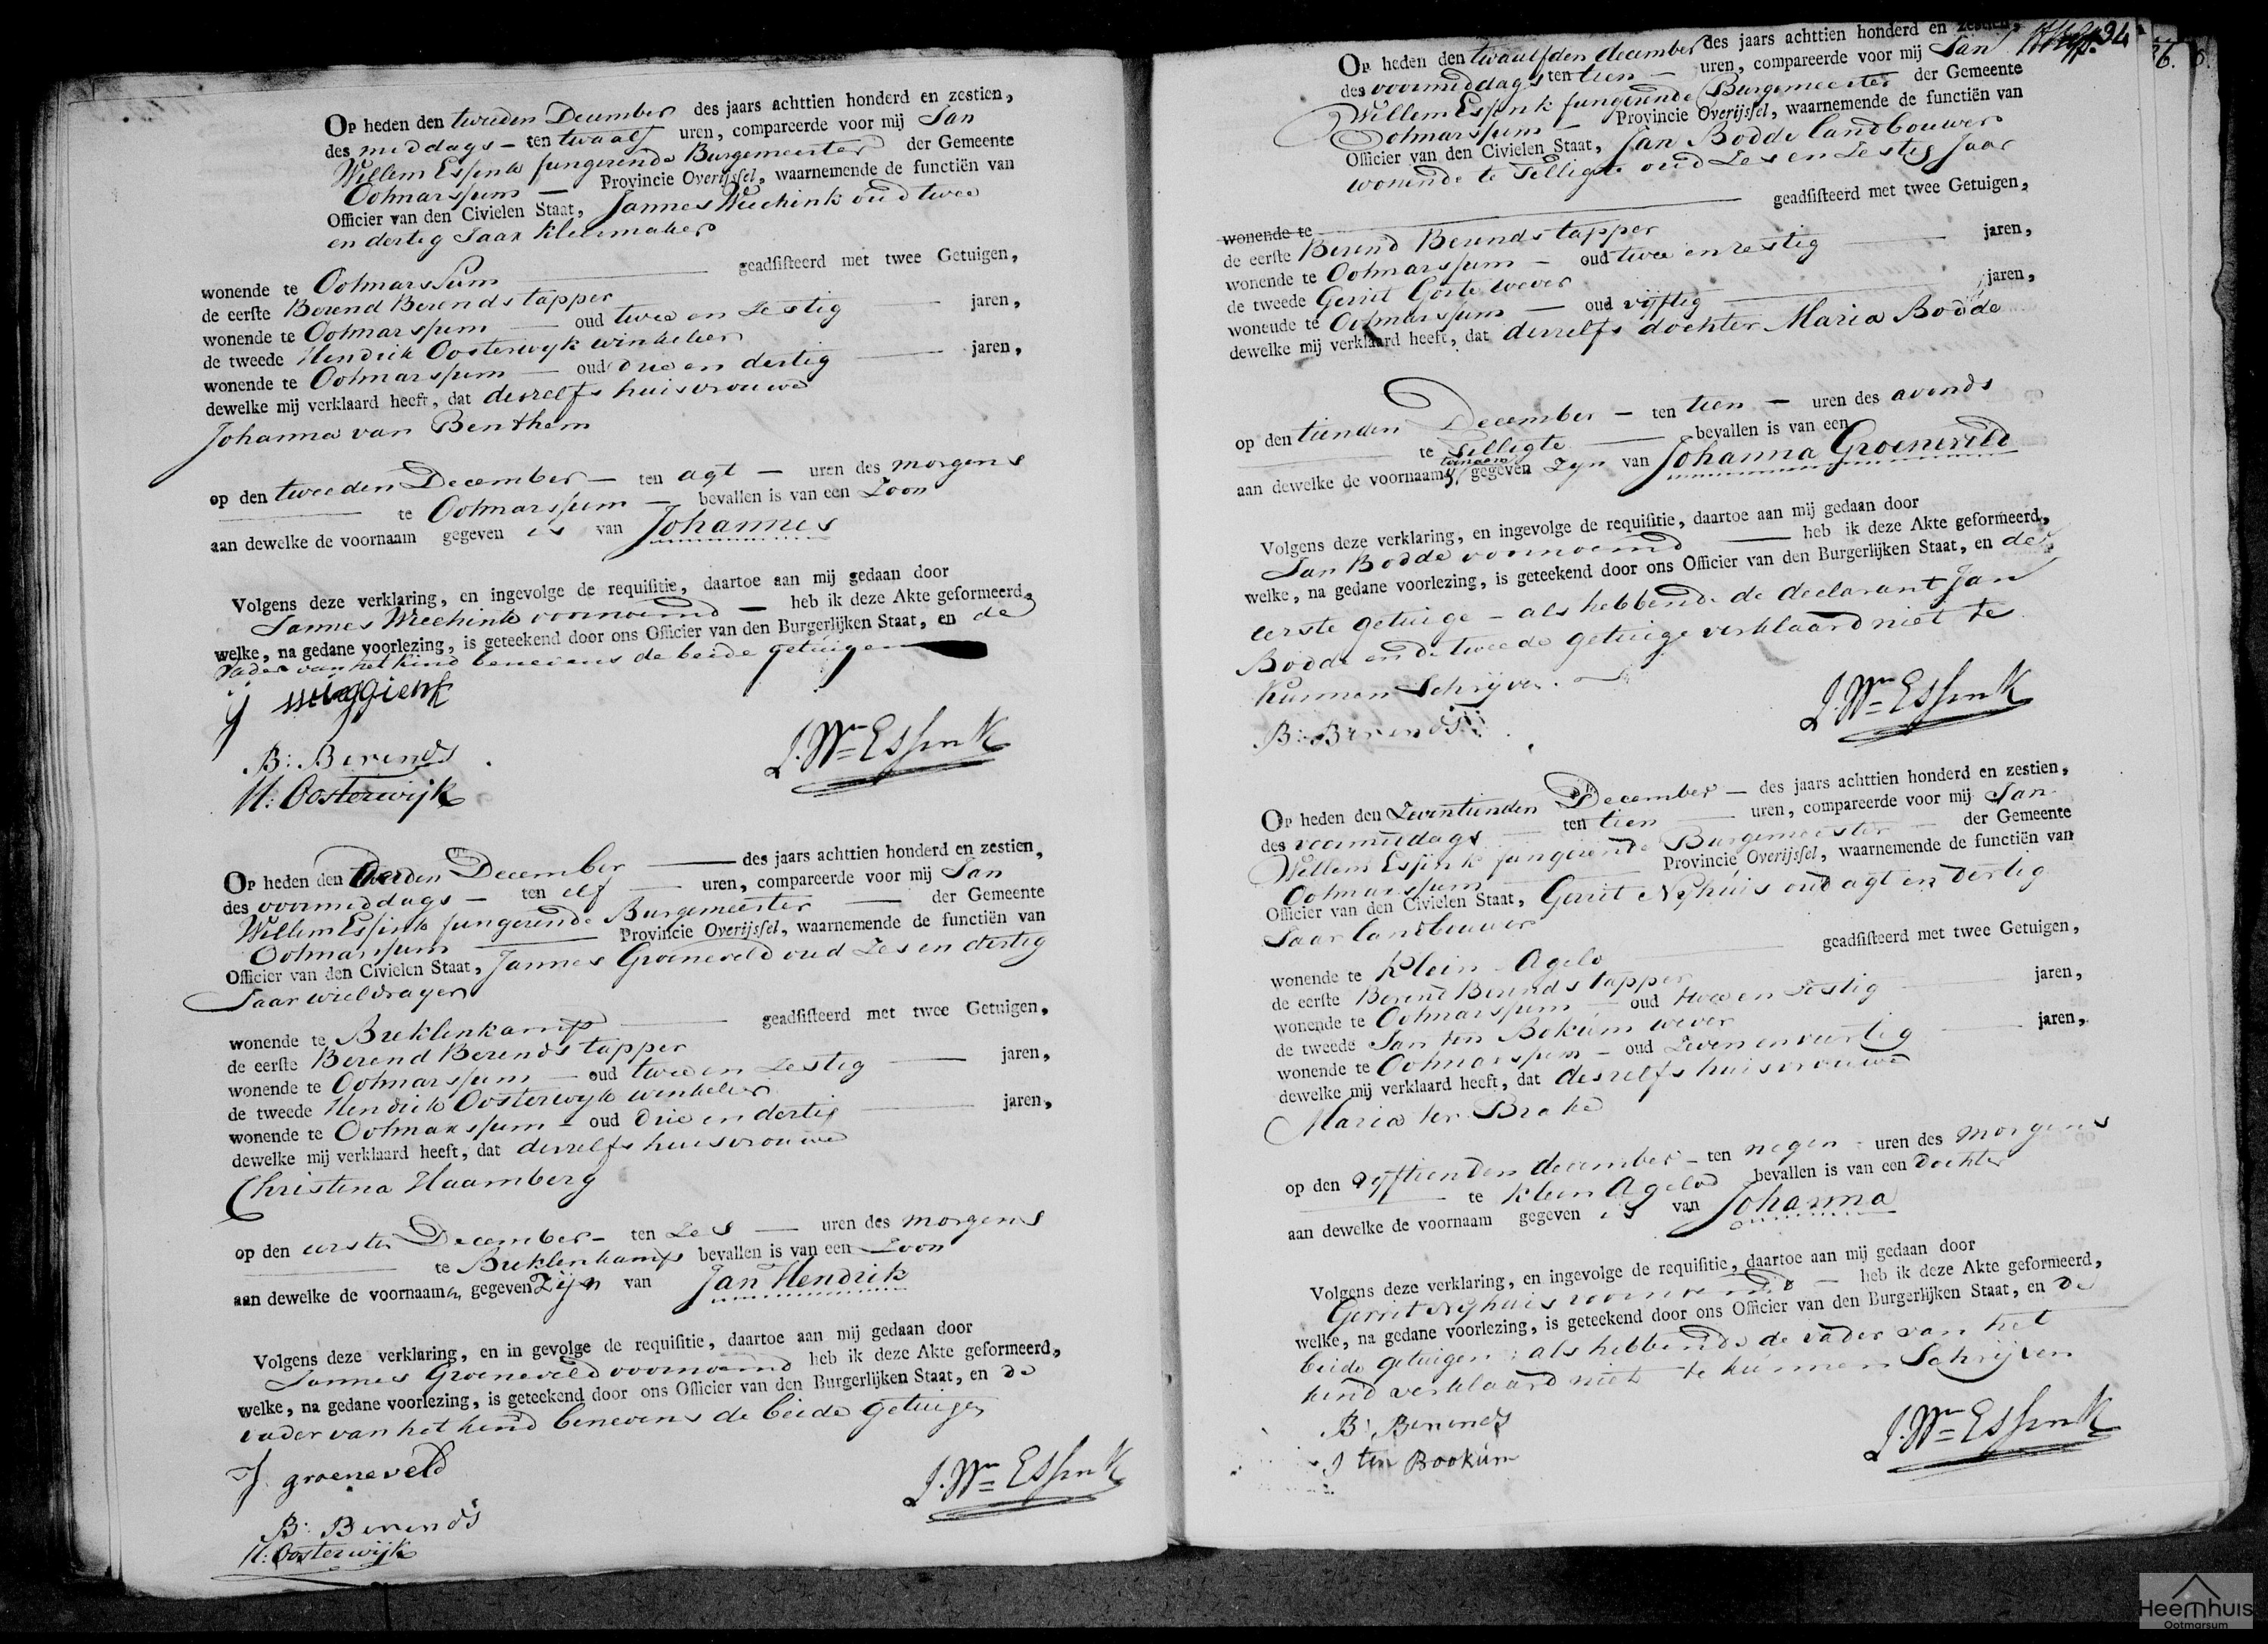 Op heden den tweeden December des jaars achttien honderd en zestien,
des middags – ten twaalf uren, compareerde voor mij Jan
Willem Essink fungerende Burgemeester der Gemeente
Ootmarssum — Provincie Overijssel, waarnemende de functiën van
Officier van den Civielen Staat, Jannes Weechink oud twee
en dertig Jaar Kleermaker
wonende te Ootmarssum geadsisteerd met twee Getuigen,
de eerste Berend Berends tapper
wonende te Ootmarssum — oud twee en Zestig jaren,
de tweede Hendrik Oosterwyk winkelier
wonende te Ootmarssum — oud drie en dertig jaren,
dewelke mij verklaard heeft, dat deszelfs huisvrouwe
Johanna van Benthem
op den tweeden December – ten agt – uren des morgens
te Ootmarssum – bevallen is van een Zoon
aan dewelke de voornaam gegeven is van Johannes
Volgens deze verklaring, en ingevolge de requisitie, daartoe aan mij gedaan door
Jannes Weechink voornoemd — heb ik deze Akte geformeerd,
welke, na gedane voorlezing, is geteekend door ons Officier van den Burgerlijken Staat, en de
Vader van het kind benevens de beide getuigen
B: Berends
J. Wm Essink
H: Oosterwijk
Op heden den derden December — des jaars achttien honderd en zestien,
des voormiddags – ten elf — uren, compareerde voor mij Jan
Willem Essink fungerende Burgemeester — der Gemeente
Ootmarssum — Provincie Overijssel, waarnemende de functiën van
Officier van den Civielen Staat, Jannes Groeneveld oud Zes en dertig
Jaar wieldrayer
wonende te Breklenkamp — geadsisteerd met twee Getuigen,
de eerste Berend Berends tapper
wonende te Ootmarssum – oud twee en Zestig — jaren,
de tweede Hendrik Oosterwyk winkelier
wonende te Ootmarssum – oud drie en dertig — jaren,
dewelke mij verklaard heeft, dat deszelfs huisvrouwe
Christina Haamberg
op den eersten December – ten Zes — uren des morgens
te Breklenkamp bevallen is van een Zoon
aan dewelke de voornaamen gegeven Zijn van Jan Hendrik
Volgens deze verklaring, en in gevolge de requisitie, daartoe aan mij gedaan door
Jannes Groeneveld voornoemd heb ik deze Akte geformeerd,
welke, na gedane voorlezing, is geteekend door ons Officier van den Burgerlijken Staat, en de
vader van het kind benevens de beide getuigen
J. groeneveld
J. Wm Essink
B: Berends
H: Oosterwijk
34
Op heden den twaalfden december des jaars achttien honderd en zestien,
des voormiddags ten tien – uren, compareerde voor mij Jan
Willem Essink fungerende Burgemeester der Gemeente
Ootmarssum – Provincie Overijssel, waarnemende de functiën van
Officier van den Civielen Staat, Jan Bodde landbouwer
wonende te Tilligte oud Zes en Zestig Jaar
wonende te — geadsisteerd met twee Getuigen,
de eerste Berend Berends tapper
wonende te Ootmarssum – oud twee en zestig — jaren,
de tweede Gerrit Gorte wever
wonende te Ootmarssum – oud vijftig — jaren,
dewelke mij verklaard heeft, dat deszelfs dochter Maria Bodde
op den tienden December – ten tien – uren des avonds
te Tilligte — bevallen is van een
aan dewelke de voornaam gegeven Zyn van Johanna Groeneveld
Volgens deze verklaring, en ingevolge de requisitie, daartoe aan mij gedaan door
Jan Bodde voornoemd — heb ik deze Akte geformeerd,
welke, na gedane voorlezing, is geteekend door ons Officier van den Burgerlijken Staat, en de
eerste getuige – als hebbende de declarant Jan
Bodde en de tweede getuige verklaard niet te
Kunnen Schrijven.
J. Wm Essink
B: Berends
Op heden den Zeventienden December – des jaars achttien honderd en zestien,
des voormiddags — ten tien — uren, compareerde voor mij Jan
Willem Essink fungerende Burgemeester — der Gemeente
Ootmarssum — Provincie Overijssel, waarnemende de functiën van
Officier van den Civielen Staat, Gerrit Nyhuis oud agt en dertig
Jaar landbouwer
wonende te Klein Agelo — geadsisteerd met twee Getuigen,
de eerste Berend Berends tapper
wonende te Ootmarssum – oud twee en Zestig — jaren,
de tweede Jan ten Bokum wever
wonende te Ootmarssum – oud Zeven en veertig — jaren,
dewelke mij verklaard heeft, dat deszelfs huisvrouwe
Maria ter Brake
op den vyftienden december – ten negen – uren des morgens
te Klein Agelo bevallen is van een dochter
aan dewelke de voornaam gegeven is van Johanna
Volgens deze verklaring, en ingevolge de requisitie, daartoe aan mij gedaan door
Gerrit Nyhuis voornoemd – heb ik deze Akte geformeerd,
welke, na gedane voorlezing, is geteekend door ons Officier van den Burgerlijken Staat, en de
beide getuigen: als hebbende de vader van het
kind verklaard niet te kunnen Schrijven
B: Berends
J. Wm Essink
J ten Bookum
Heemhuis
Ootmarsum